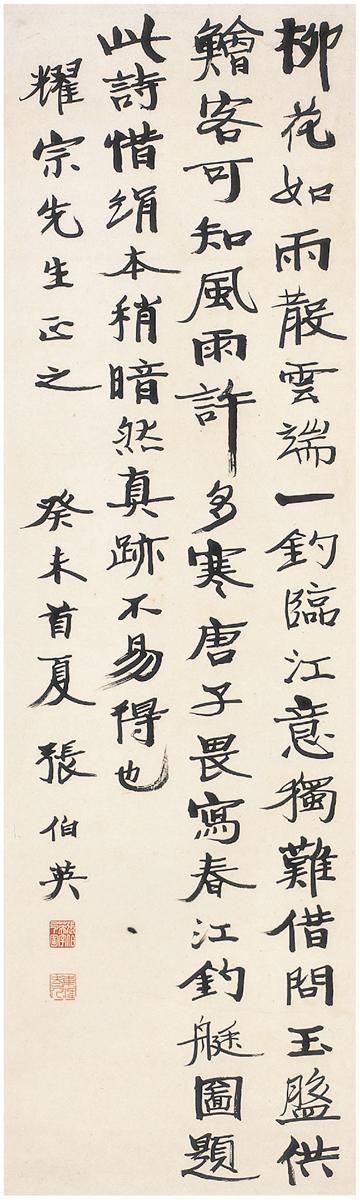 柳花如雨散雲端一釣臨江意獨難借問玉盤供
鱠客可知風雨許多寒唐子畏寫春江釣艇圖題
此詩惜絹本稍暗然真跡不易得也
耀宗先生正之 癸未首夏 張伯英